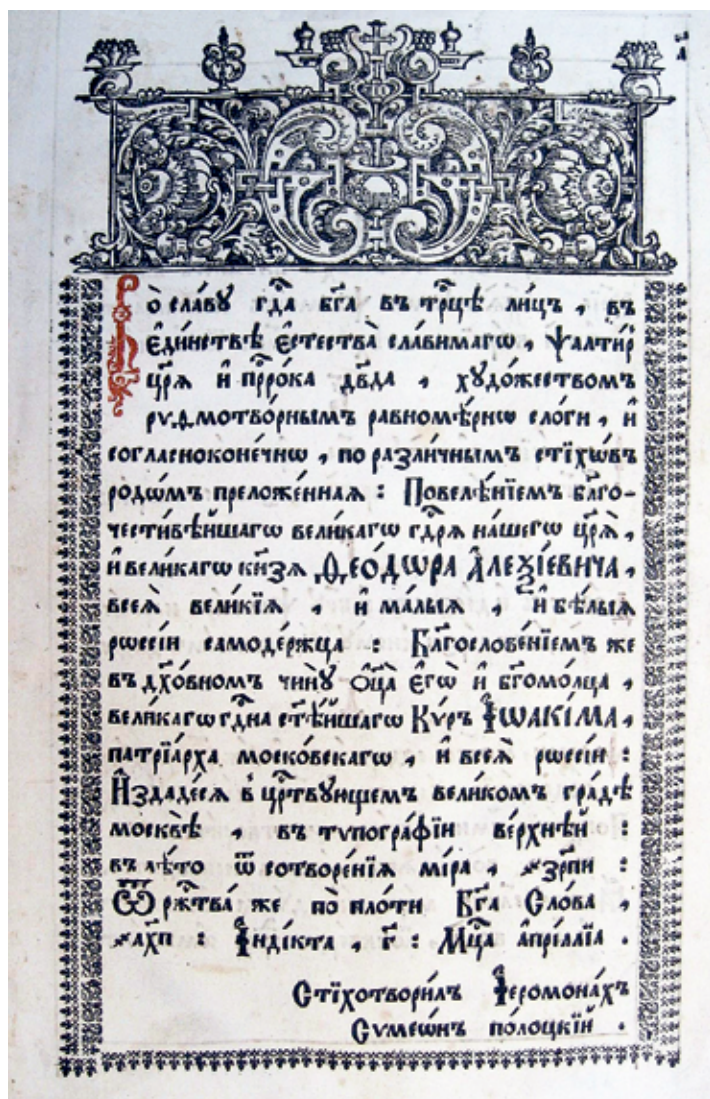 Во славу гдⷭ҇а бг҃а въ трⷪ҇цѣ лицъ , въ
є҆ди́нствѣ є҆стества̀ сла́вимагѡ , ѱалти́р
цр҃ѧ̀ и҆ прⷪ҇ро́ка дв҃да , худо́жествомъ
рѵѳмотво́рнымъ равномѣ́рнѡ сло́ги , и҆
согласноконе́чнѡ , по разли́чнымъ стїхѡ́въ
родѡ́мъ преложе́ннаѧ : Повелѣ́нїемъ бл҃го-
чести́вѣйшагѡ вели́кагѡ гдⷭ҇рѧ на́шегѡ цр҃ѧ̀ ,
и҆ вели́кагѡ кнѧ́зѧ Ѳео́дѡра А҆леѯі́евича ,
всеѧ̀ вели́кїѧ , и҆ ма́лыѧ , и҆ бѣ́лыѧ
рѡссі́и самоде́ржца : Бл҃гослове́нїемъ же
въ дх҃о́вномъ чи́нꙋ ѻ҆ц҃а̀ є҆гѡ̀ и҆ бг҃омо́лца ,
вели́кагѡ гдⷭ҇и́на ст҃ѣ́йшагѡ Кѵ́ръ І҆ѡаки́ма ,
патрїа́рха моско́вскагѡ , и҆ всеѧ̀ рѡссі́и :
И҆здаде́сѧ в црⷭ҇твꙋющемъ вели́комъ гра́дѣ
москвѣ̀ , въ тѵпогра́фїи ве́рхнѣй :
въ лѣ́то ѿ сотворе́нїѧ мі́ра , ҂зрпи :
Ѿ ржⷭ҇тва́ же по пло́ти Бг҃а Сло́ва ,
҂ах҃п : І҆нді́кта , г҃ : Мцⷭ҇а а҆прі́ллїа .
Стїхотвори́лъ І҆еромона́хъ
Сѵмеѡ́нъ по́лоцкїй .